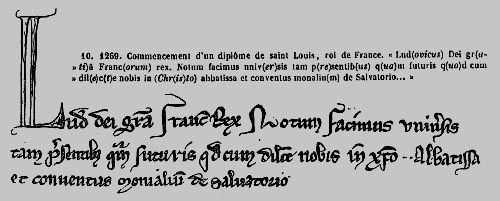 10. 1269. Commencement d'un diplôme de saint Louis, roi de France. « Lud(ovicus) Dei gr(a-
ti)â Franc(orum) rex. Notum facimus univ(er)sis tam p(re)sentib(us) q(ua)m futuris q(uo)d cum
dil(e)c(t)e nobis in (Chr(is)to) abbatissa et conventus monaliu(m) de Salvatorio... »
Lud dei gra Franc Rex Notum facimus univsis
tam psentib qm futuris qd cum dilce nobis in xpo ·· Abbatissa
et conventus monaliu de Salvatorio